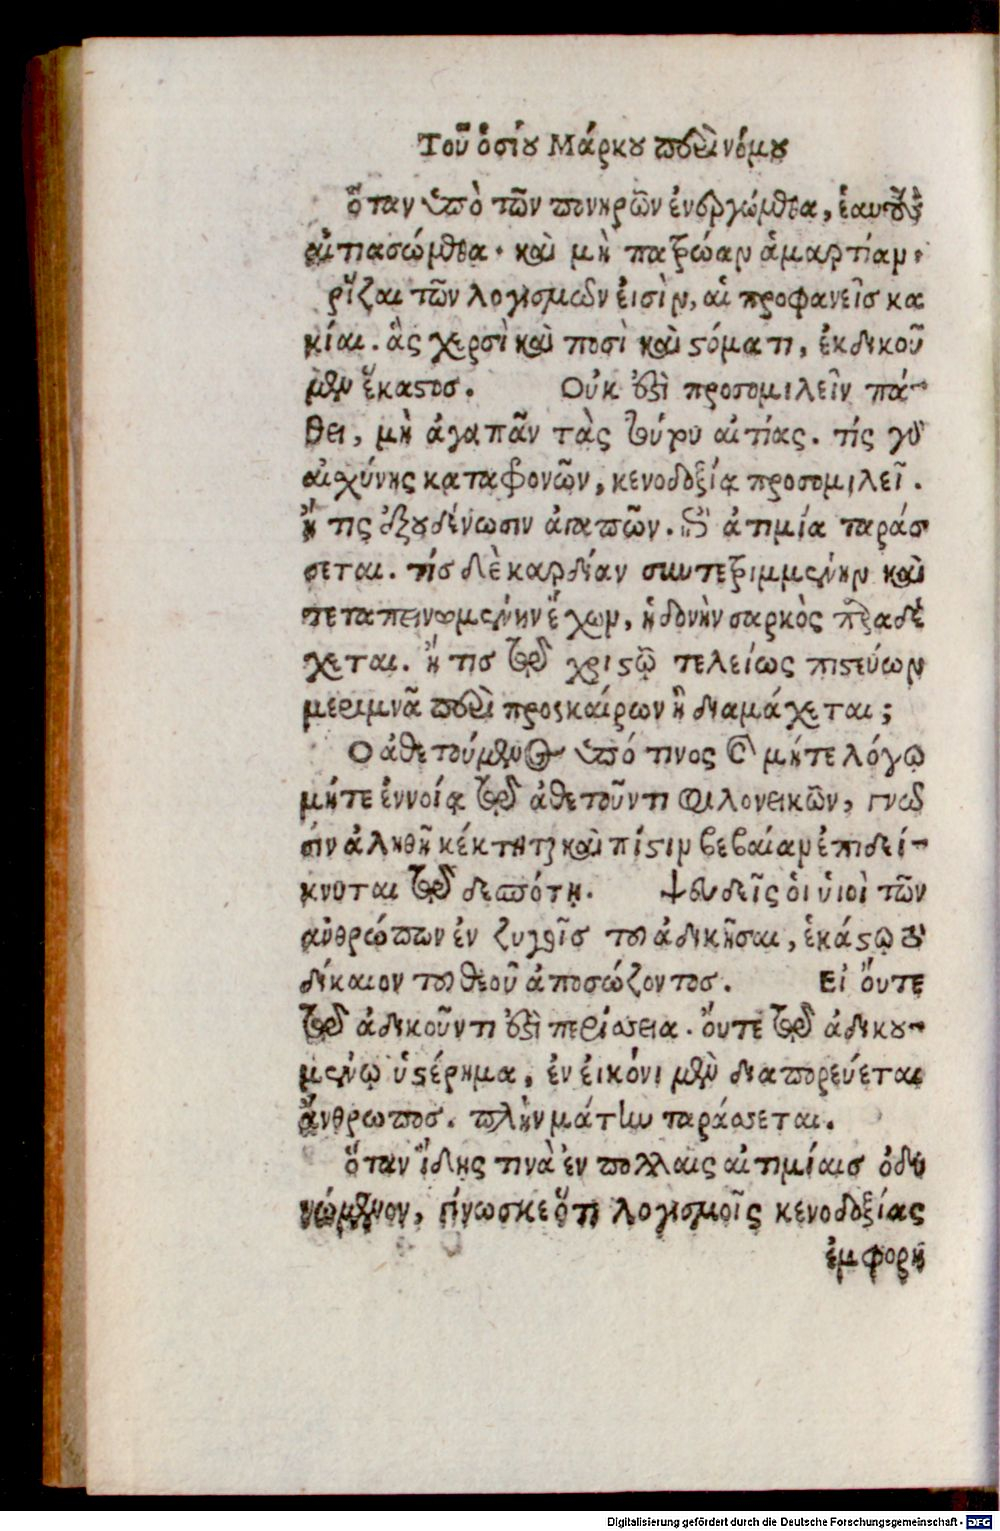 Τοῦ ὁσίου Μάρκου περὶ νόμου
ὅταν ὑπὸ τῶν πονηρῶν ἐνεργώμεθα, ἑαυτοὺς
αἰτιασώμεθα· καὶ μὴ πατρώαν ἁμαρτίαν·
ῥίζαι τῶν λογισμῶν εἰσὶν, αἱ προφανεῖσ κα
κίαι. ἃς χερσὶ καὶ ποσὶ καὶ στόματι, ἐκδικοῦ
μεν ἕκαστοσ. Οὐκ ἔστι προσομιλεῖν πά-
θει, μὴ ἀγαπᾶν τὰς τούτου αἰτίας. τίς γὰρ
αἰσχύνης καταφρονῶν, κενοδοξίᾳ προσομιλεῖ.
ἢ τις ἐξουδένωσιν ἀγαπῶν. ἀτιμίᾳ ταράσ
σεται. τίσ δὲ καρδίαν συντετριμμένην καὶ
τεταπεινωμένην ἔχων, ἡδονὴν σαρκὸς παραδέ
χεται. ἢ τισ τῷ χριστῷ τελείως πιστεύων
μεριμνᾷ περὶ προσκαίρων ἢ διαμάχεται;
Ο ἀθετούμενος ὑπό τινος καὶ μήτε λόγῳ
μήτε ἐννοίᾳ τῷ ἀθετοῦντι φιλονεικῶν, γνῶ
σιν ἀληθῆ κέκτηται καὶ πίστιν βεβαίαν ἐπιδεί-
κνυται τῷ δεσπότῃ. ψευδεῖς οἱ υἱοὶ τῶν
ἀνθρώπων ἐν ζυγοῖσ τοῦ ἀδικῆσαι, ἑκάστῳ τὸ
δίκαιον τοῦ θεοῦ ἀποσώζοντοσ. Εἰ οὔτε
τῷ ἀδικοῦντι ἔστι περίσσεια. οὔτε τῷ ἀδικου-
μένῳ ὑστέρημα, ἐν εἰκόνι μὲν διαπορεύεται
ἄνθρωποσ. πλὴν μάτην ταράσσεται.
ὅταν ἴδῃς τινὰ ἐν πολλαῖς ἀτιμίαισ ὀδυ
νώμενον, γίνωσκε ὅτι λογισμοῖς κενοδοξίας
ἐμφορη
Digitalisierung gefördert durch die Deutsche Forschungsgemeinschaft - DFG